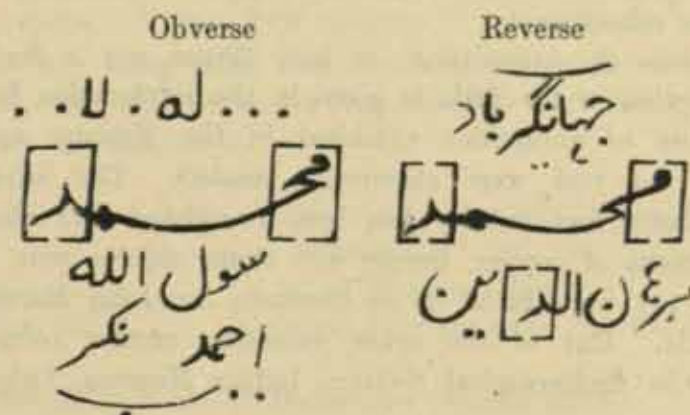 Obverse
... له . لا ...
[مح]م[د]
سول الله
احمد نكر
Reverse
جهانگرباد
[م]حم[د]
ن ال[د]ين